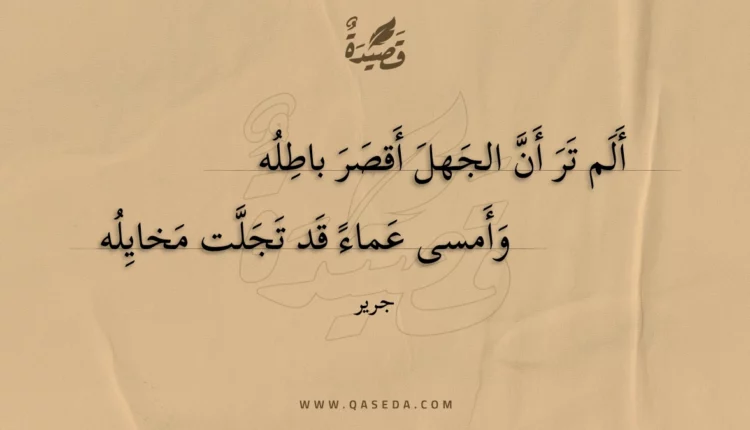 قَصِيدَةٌ
أَلَم تَرَ أَنَّ الجَهلَ أَقصَرَ باطِلُه
وَأَمسى عَماءً قَد تَجَلَّت مَخايِلُه
جرير
WWW.QASEDA.COM